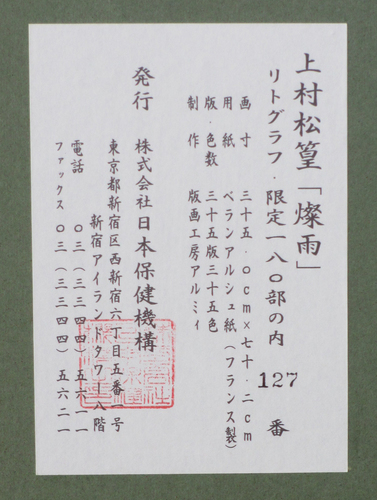 上村松篁「燦雨」
リトグラフ・限定一八〇部の内 127 番
画寸 三十五・〇cm×七十・二cm
用紙 ベランアルシュ紙(フランス製)
版・色数 三十五版三十五色
制作 版画工房アルミィ
発行 株式会社日本保健機構
東京都新宿区西新宿六丁目五番一号
新宿アイランドタワー八階
電話 〇三(三三四四)五六一一
ファックス 〇三(三三四四)五六二一